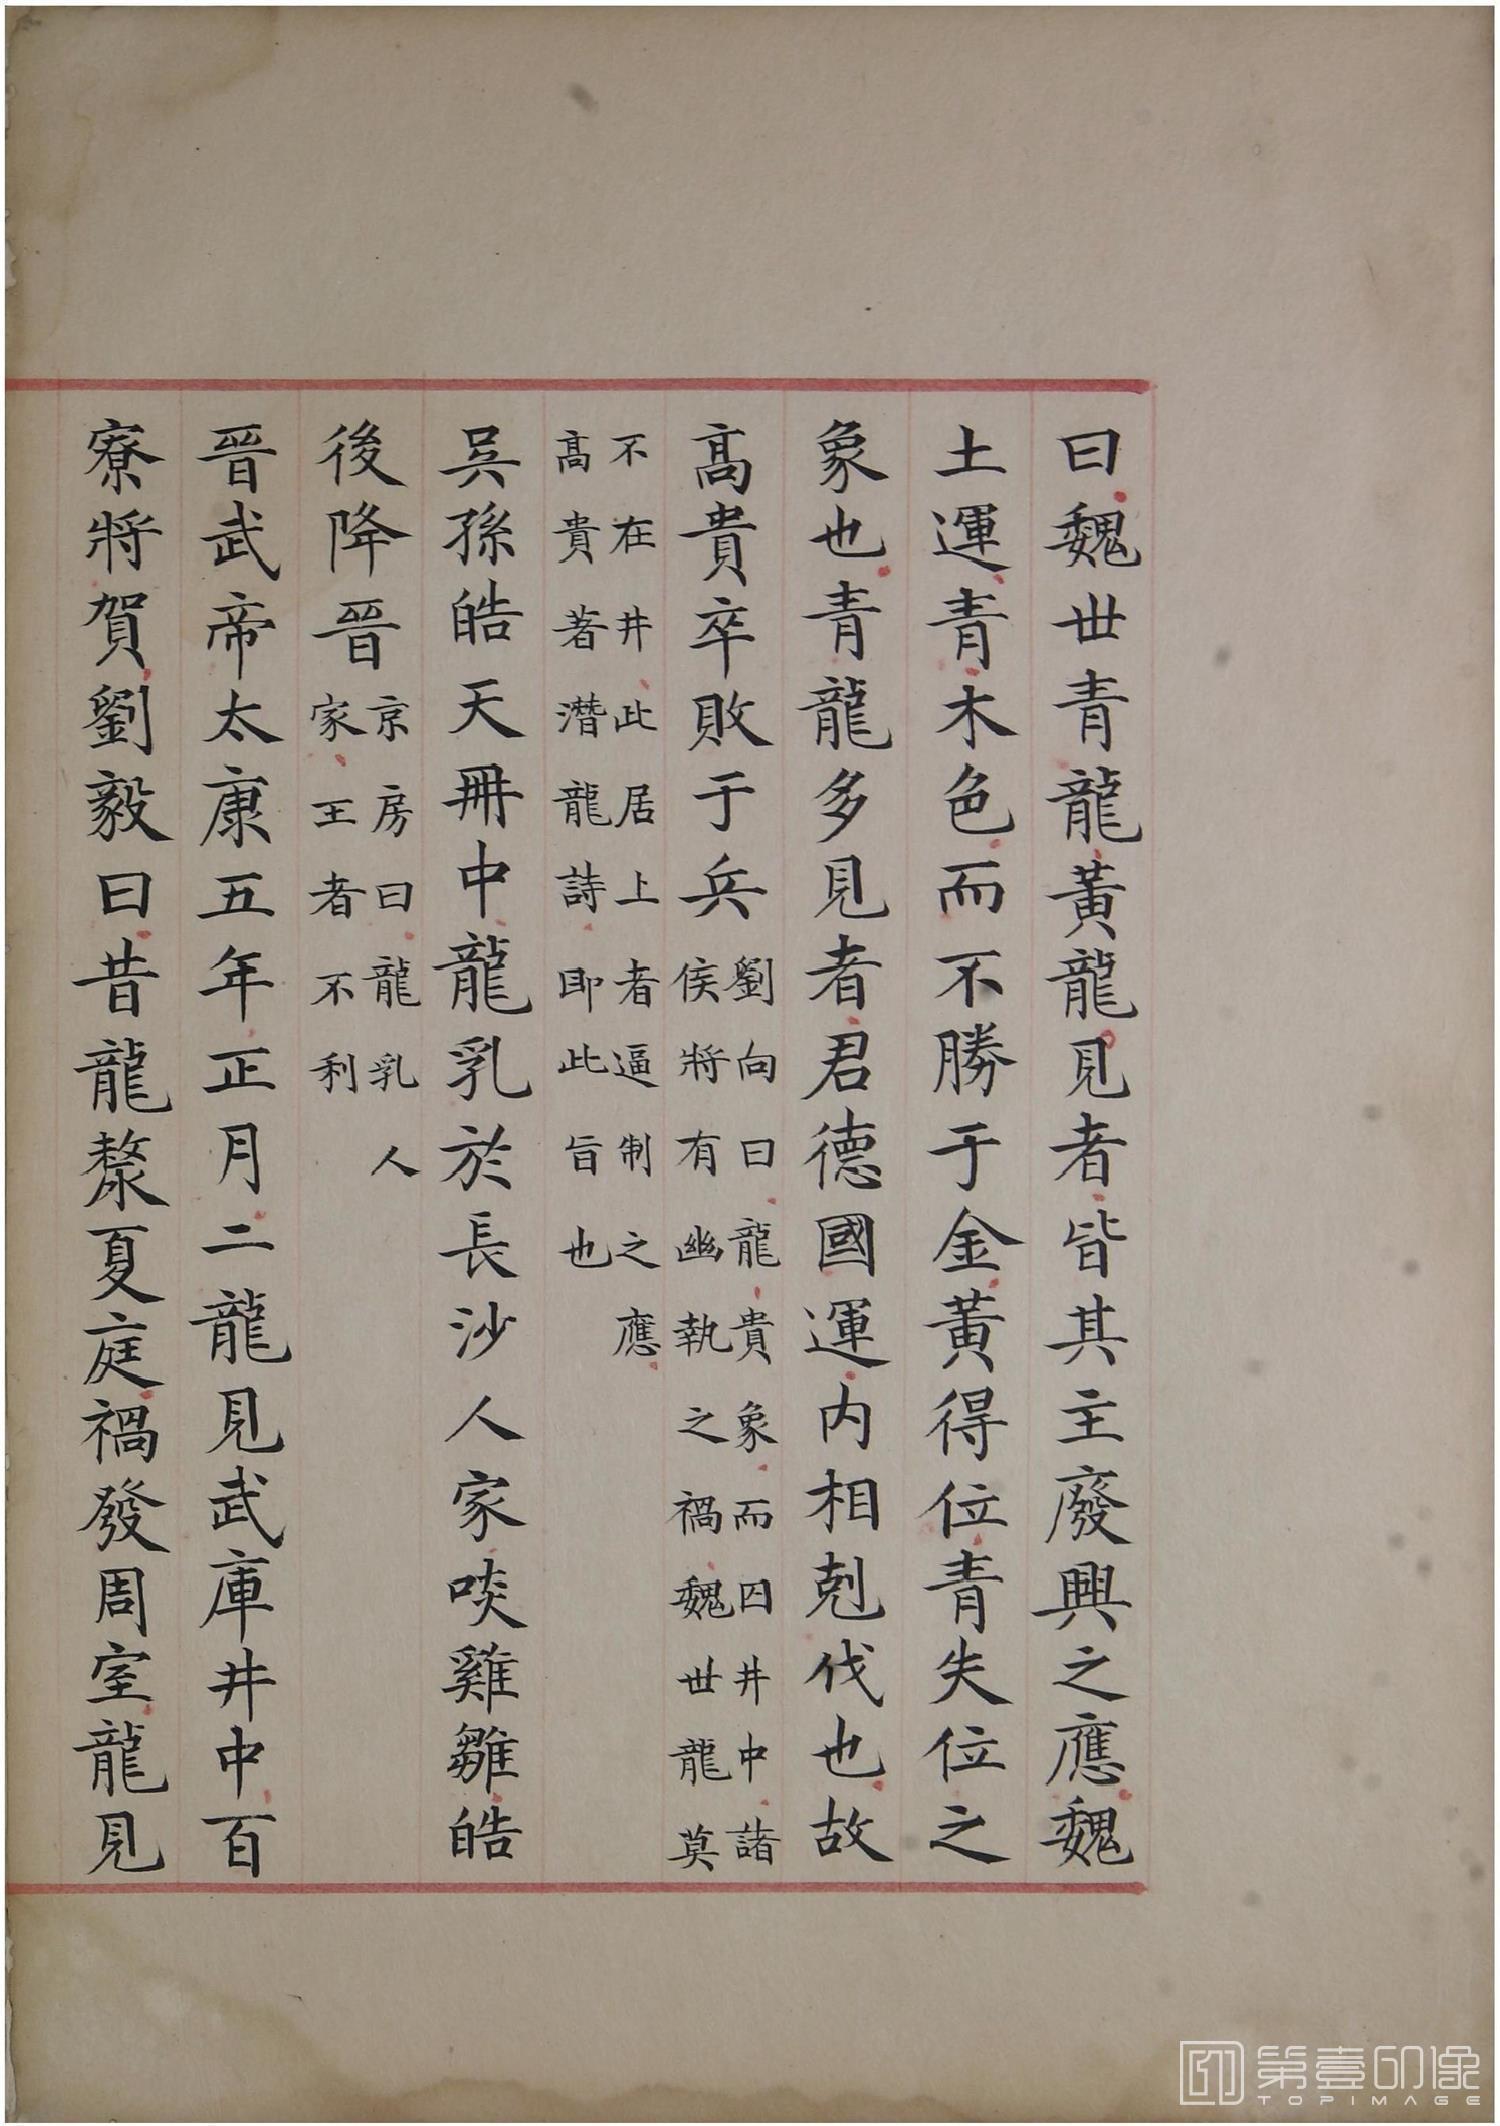 曰魏世青龍黃龍見者皆其主廢興之應魏
土運青木色而不勝于金黃得位青失位之
象也青龍多見者君德國運内相剋伐也故
高貴卒敗于兵
劉向曰龍貴象而囚井中諸
侯將有幽執之禍魏世龍莫
不在井此居上者逼制之應
高貴著潛龍詩即此旨也
吳孫皓天冊中龍乳於長沙人家啖雞雛皓
後降晉
京房曰龍乳人
家王者不利
晉武帝太康五年正月二龍見武庫井中百
寮將賀劉毅曰昔龍漦夏庭禍發周室龍見
第壹印像
TOPIMAGE